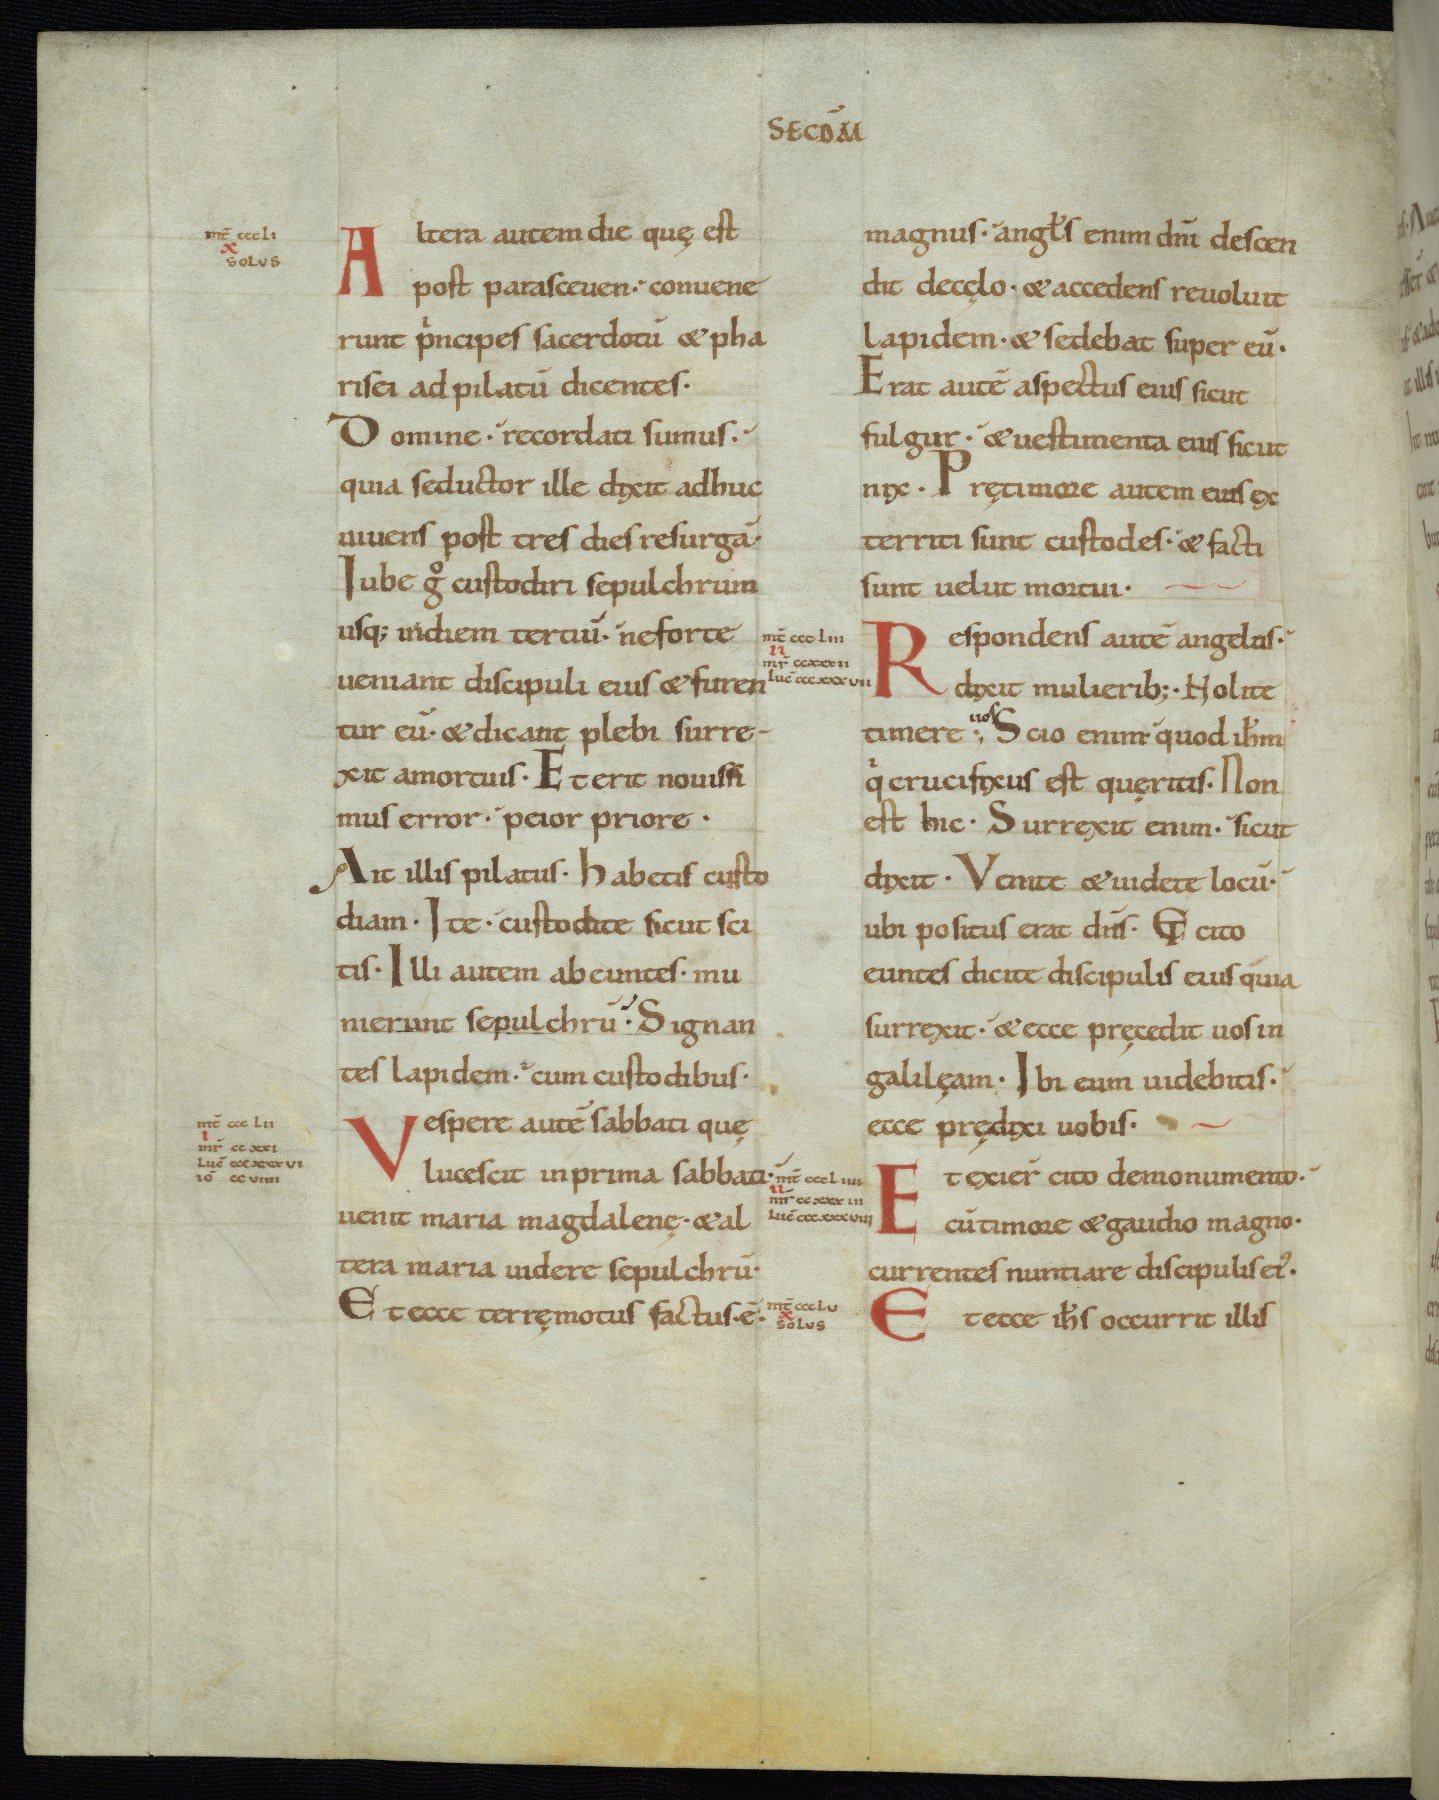 SECDM̄
mt̄ cccLi
x
SOLUS
Altera autem die quę est
post parasceuen· conuene
runt p̍ncipes sacerdotū & pha
risei ad pilatū dicentes·
Domine· recordati sumus·
quia seductor ille dixit adhuc
uiuens post tres dies resurgā·
Iube gͦ custodiri sepulchrum
usq; indiem tertiū· neforte
ueniant discipuli eius & furen
tur eū· & dicant plebi surre-
xit amortuis· Et erit nouissi
mus error· peior priore·
Ait illis pilatus· habetis custo
diam· Ite· custodite sicut sci
tis· Illi autem abeuntes· mu
nierunt sepulchrū· Signan
tes lapidem· cum custodibus·
mt̄ ccc Lii
i
mr̄ cc xxi
Luc̄ cccxxxvi
io cc viiii
Vespere autē sabbati quę
lucescit inprima sabbati·
uenit maria magdalenę· & al
tera maria uidere sepulchrū·
Et ecce terręmotus factus·ē·
magnus· angłs enim dn̄i descen
dit decęlo· & accedens reuoluit
lapidem· & sedebat super eū·
Erat autē aspectus eius sicut
fulgur· & uestimenta eius sicut
nix· Prętimore autem eius ex
territi sunt custodes· & facti
sunt uelut mortui·
mt̄ ccc Liii
ii
mr̄ ccxxxii
Luc̄ cccxxxvii
Respondens autē angelus·
dixit mulierib;· Nolite
timere uos·, Scio enim· quod ihm̄
q̍ crucifixus est quęritis· Non
est hic· Surrexit enim· sicut
dixit· Venite & uidete locū·
ubi positus erat dn̄s· Et cito
euntes dicite discipulis eius quia
surrexit· & ecce pręcedit uos in
galilęam· Ibi eum uidebitis·
ecce prędixi uobis·
mt̄ cccLiiii
ii
mr̄ ccxxxiii
Luc̄ cccxxxviii
Et exier̄ cito demonumento·
cūtimore & gaudio magno·
currentes nuntiare discipulis ei᾽·
mt̄ cccLv
x
SOLUS
Et ecce ihs̄ occurrit illis